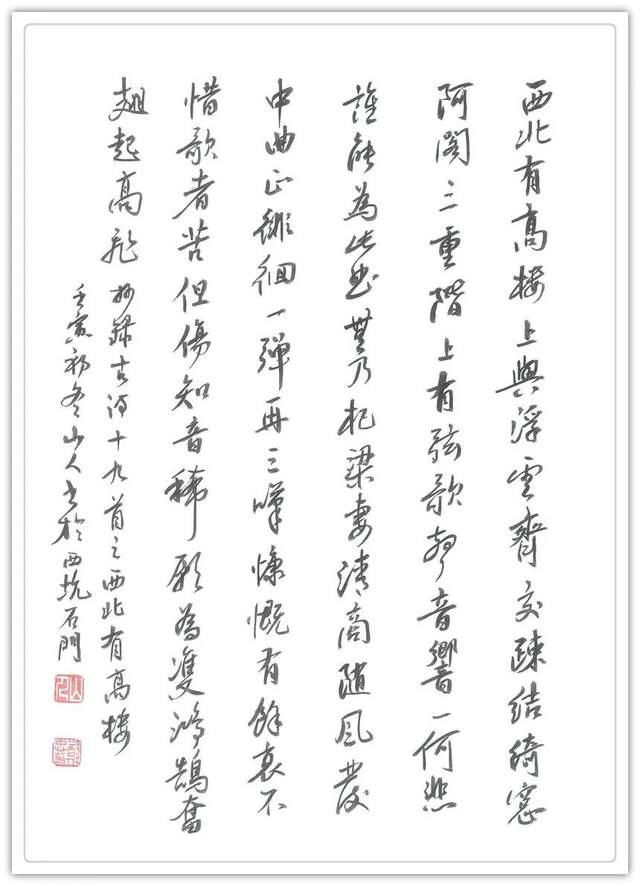 西北有高樓上與浮雲齊交疎結綺窓
阿閣三重階上有弦歌聲音響一何悲
誰能為此曲無乃杞梁妻清商随風發
中曲正徘徊一彈再三嘆慷慨有餘哀不
惜歌者苦但傷知音稀願為雙鴻鵠奮
翅起高飛 抄錄古詩十九首之西北有高樓
壬寅初冬山人書於西坑石門
山人